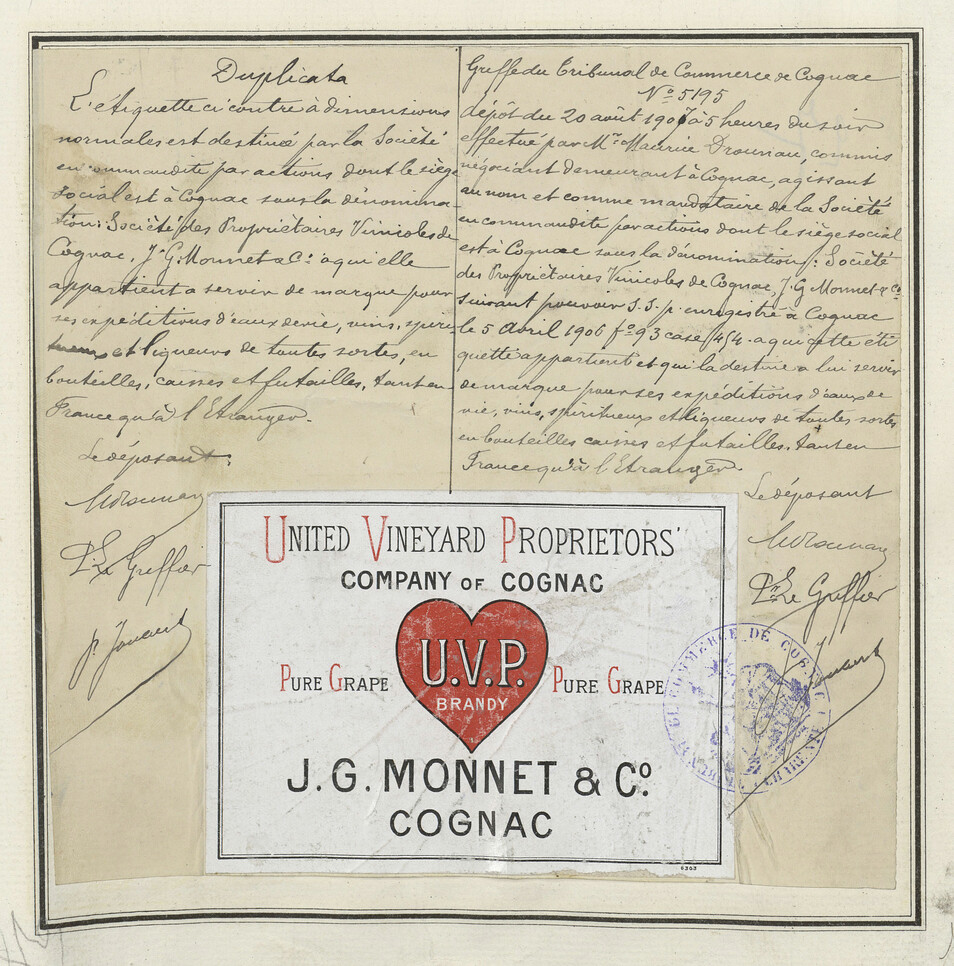 Duplicata
L'étiquette ci contre à dimensions
normales est destinée par la Société
en commandite par actions dont le siège
social est à Cognac sous la dénomina-
tion: Société des Propriétaires Vinicoles de
Cognac, J. G. Monnet & Co à qui elle
appartient a servir de marque pour
ses expéditions d'eaux de vie, vins, spiri-
tueux et liqueurs de toutes sortes, en
bouteilles, caisses et futailles, tant en
France qu'à l'Etranger.
Le déposant,
Pr Le Greffier
Greffe du Tribunal de Commerce de Cognac
No 5195
dépôt du 20 août 1907 à 5 heures du soir
effectué par Mr Maurice Drounau, commis
négociant demeurant à Cognac, agissant
au nom et comme mandataire de la Société
en commandite par actions dont le siège social
est à Cognac sous la dénomination: Société
des Propriétaires Vinicoles de Cognac, J. G Monnet & Co
suivant pouvoir S.S.p. enregistré à Cognac
le 5 Avril 1906 fo 93 case 1414. a qui cette éti
quette appartient et qui la destine a lui servir
de marque pour ses expéditions d'eaux de
vie, vins, spiritueux et liqueurs de toutes sortes
en bouteilles caisses et futailles, tant en
France qu'à l'Etranger.
Le déposant
Pr Le Greffier
UNITED VINEYARD PROPRIETORS'
COMPANY OF COGNAC
U.V.P.
BRANDY
PURE GRAPE
PURE GRAPE
J. G. MONNET & Co.
COGNAC
6363
COMMERCE DE COGNAC